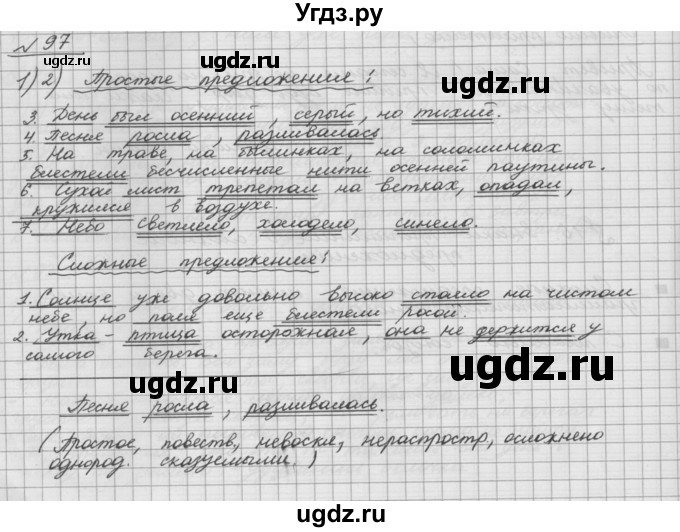 Угдз.ру
№ 97
1) 2) Простые предложения:
3. День был осенний, серый, но тихий.
4 Песня росла, разливалась
5. На траве, на былинках, на соломинках
блестели бесчисленные нити осенней паутины.
6. Сухой лист трепетал на ветках, опадал,
кружился в воздухе.
7. Небо светлело, холодело, синело.
Сложные предложения:
1. Солнце уже довольно высоко стояло на чистом
небе, но поля ещё блестели росой.
2. Утка - птица осторожная, она не держится у
самого берега.
Песня росла, разливалась.
(Простое, повеств, невоскл, нераспростр, осложнено
однород. сказуемыми.)
ugdz.ru
ugdz.ru
ugdz.ru
ugdz.ru
ugdz.ru
ugdz.ru
ugdz.ru